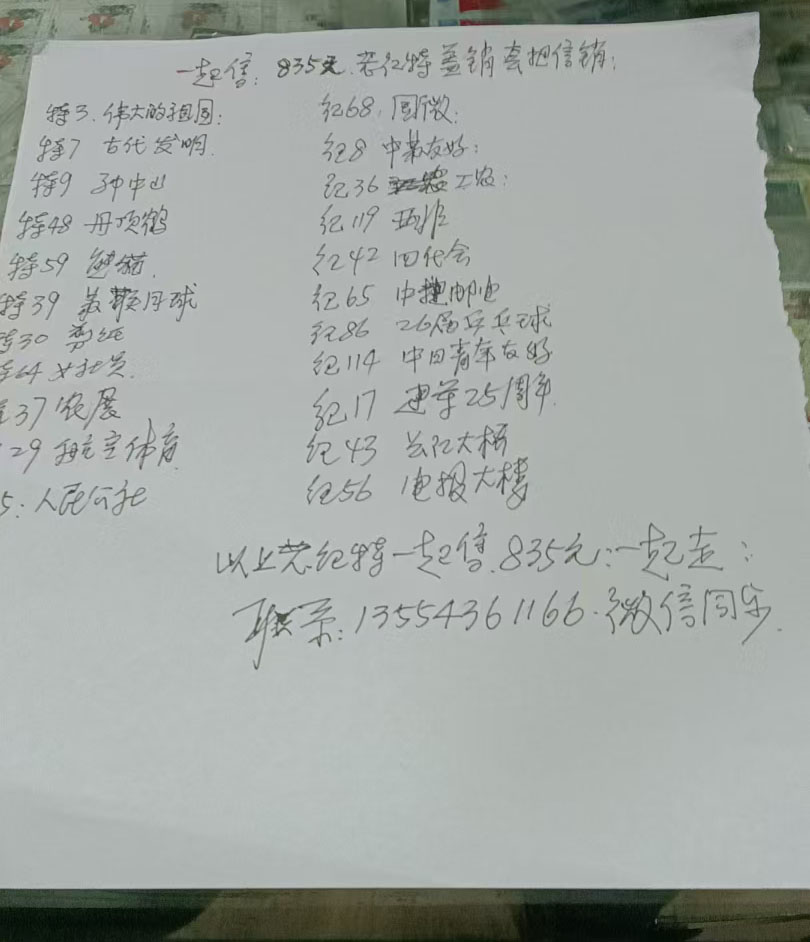 一起售：835元.老纪特盖销票把信销：
特3.伟大的祖国：
特7 古代发明.
特9 孙中山
特48 丹顶鹤
特59 熊猫.
特39 苏联月球
特30 剪纸
特64 女社员.
37 农展
29 航空体育.
5：人民公社
纪68.国徽：
纪8 中苏友好：
纪36 工农：
纪119
纪42 四代会
纪65 中捷邮电
纪86 26届乒乓球
纪114 中日青年友好
纪17 建军25周年.
纪43 长江大桥
纪56 电报大楼
以上老纪特一起售.835元：一起走：
联系：13554361166.微信同号.